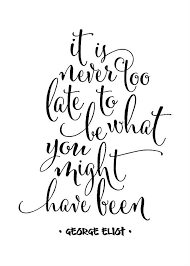 it is
never too
late to
be what
you
might
have been
• GEORGE ELIOT •